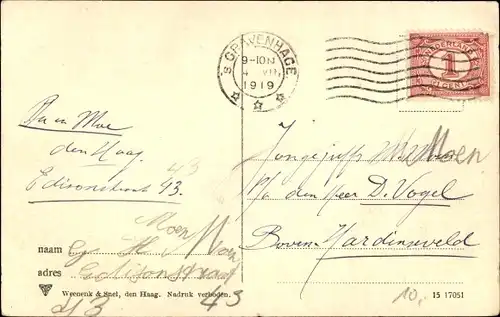 's GRAVENHAGE
9-10 N
4 VII
1919
NEDERLAND
1
CENT
Pa en Moe
den Haag
Edisonstraat 93.
43
Jongejufr. M. Moen
P/a den Heer D. Vogel
Boven-Hardinxveld
Moen
Moen Moen
naam
adres Edisonstraat
43
43
Weenenk & Snel, den Haag. Nadruk verboden.
10,-
15 17051